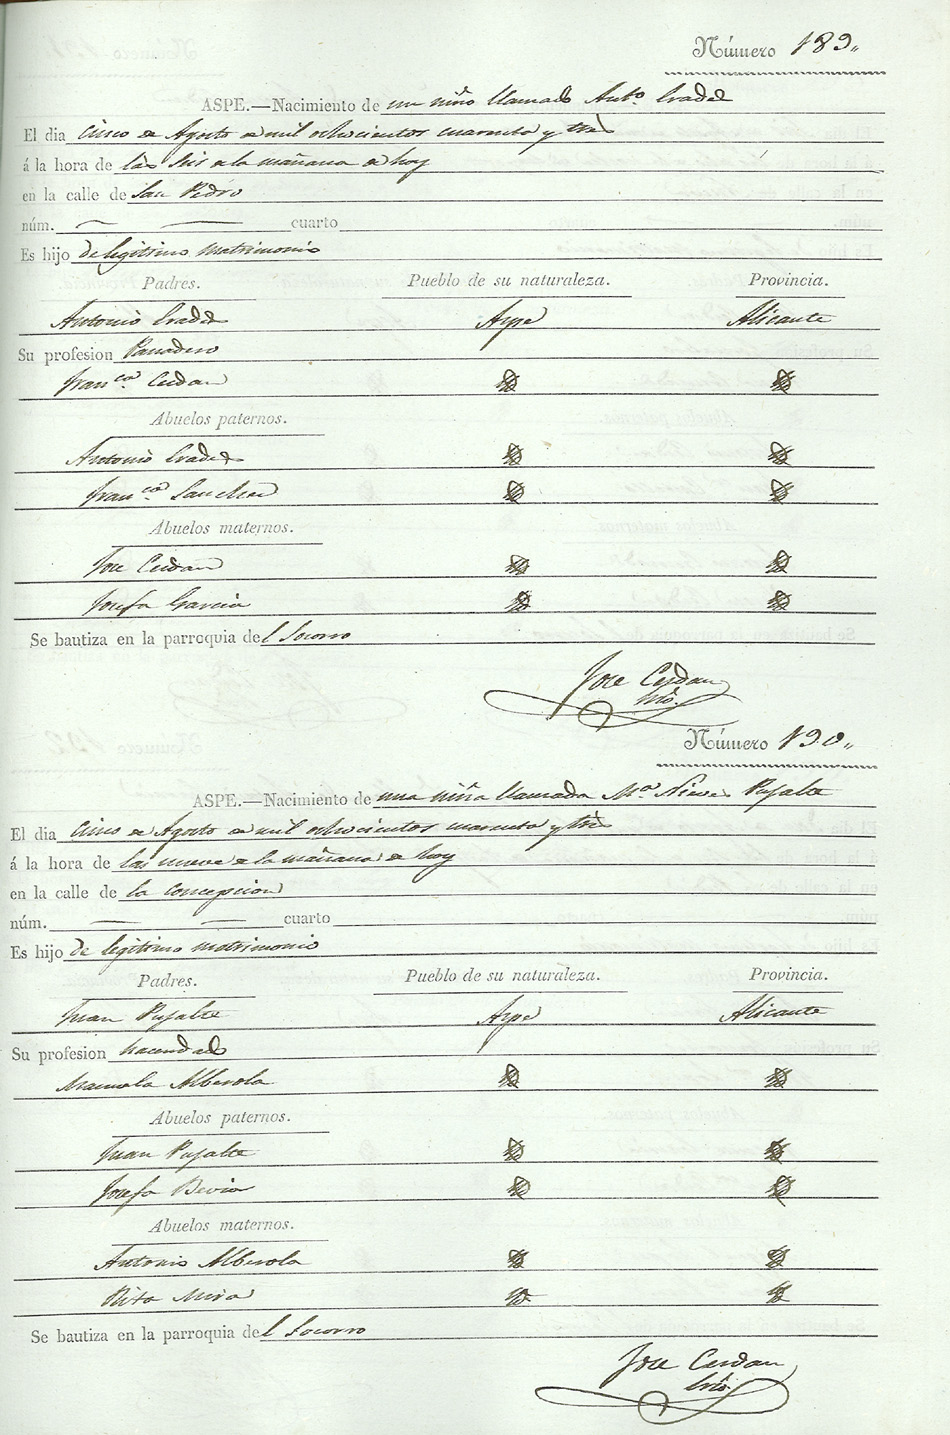 Número 189,,
ASPE.—Nacimiento de un niño llamado Antº. Cradel
El dia cinco de Agosto de mil ochocientos cuarenta y tres
á la hora de las seis de la mañana de hoy
en la calle de San Pedro
núm. — — cuarto
Es hijo de legitimo matrimonio
Padres. Pueblo de su naturaleza. Provincia.
Antonio Cradel Aspe Alicante
Su profesion Panadero
Franca. Cerdan
Abuelos paternos.
Antonio Cradel
Franca. Sanchez
Abuelos maternos.
Jose Cerdan
Josefa Garcia
Se bautiza en la parroquia del Socorro
Jose Cerdan
Número 190,,
ASPE.—Nacimiento de una niña llamada Mª Nieves Pujalte
El dia cinco de Agosto de mil ochocientos cuarenta y tres
á la hora de las nueve de la mañana de hoy
en la calle de la Concepcion
núm. — — cuarto
Es hijo de legitimo matrimonio
Padres. Pueblo de su naturaleza. Provincia.
Juan Pujalte Aspe Alicante
Su profesion hacendado
Manuela Alberola
Abuelos paternos.
Juan Pujalte
Josefa Bevia
Abuelos maternos.
Antonio Alberola
Rita Mira
Se bautiza en la parroquia del Socorro
Jose Cerdan